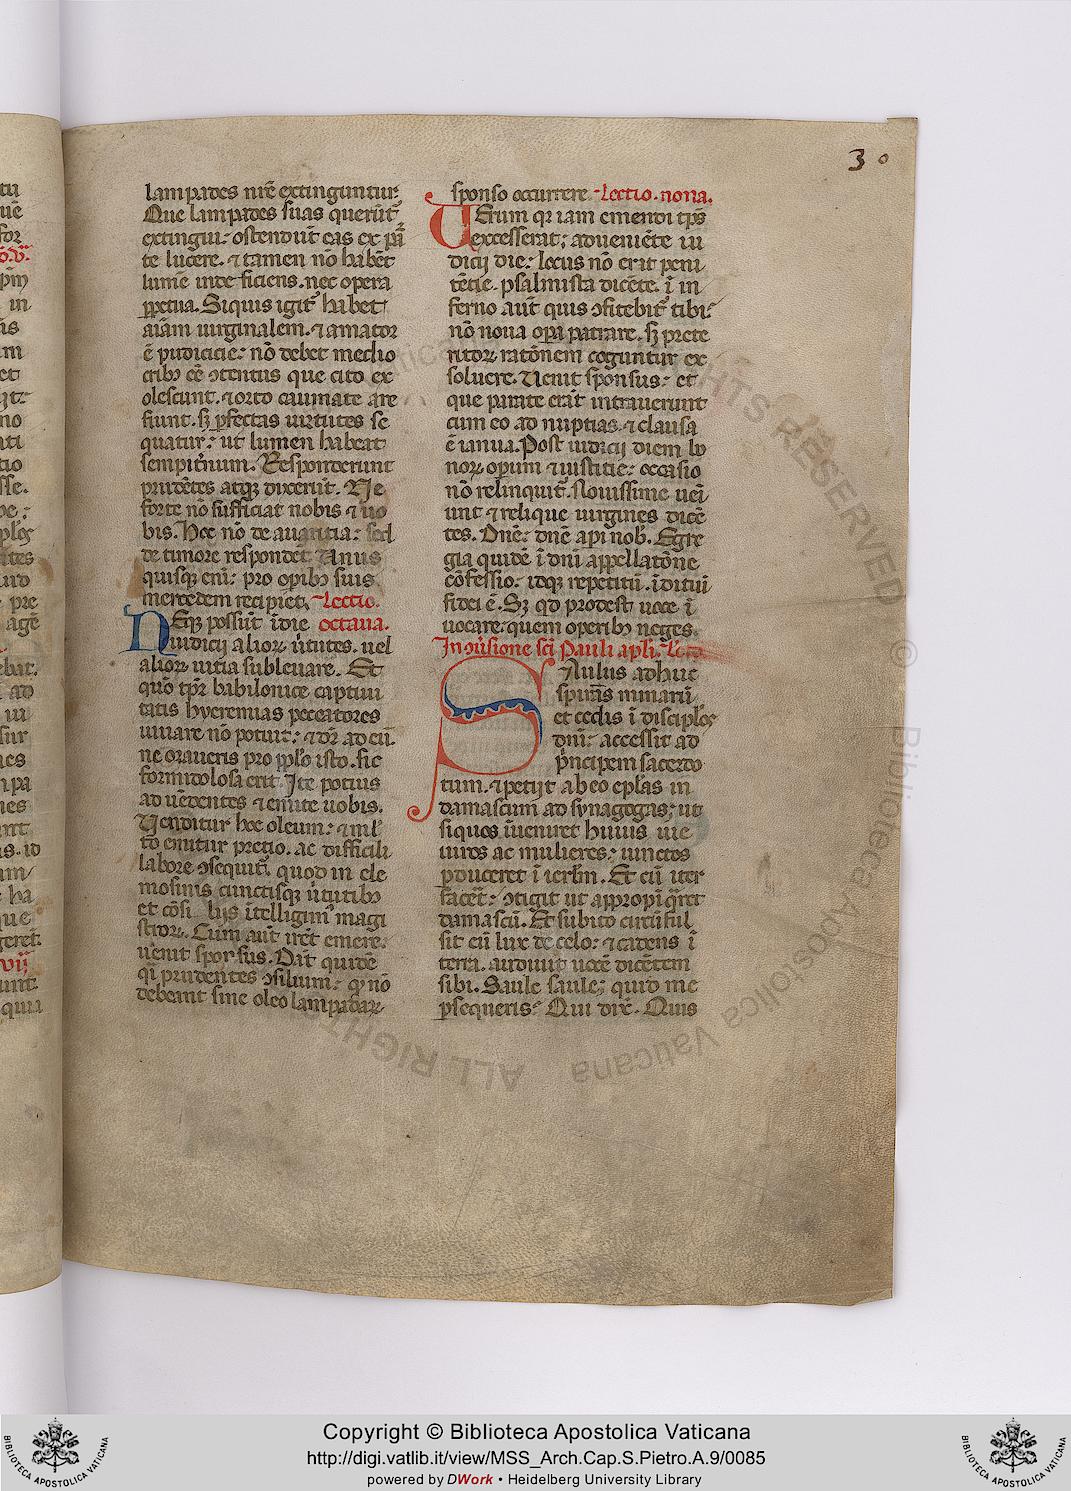 30
lampades nr̄e extinguntur.
Que lampades suas querūt̄
extingui. ostendūt eas ex pa̅
te lucere. ⁊ tamen nō habēt
lumē inde ficiens. nec opera
ꝑpetua. Siquis igit᷒ habet
aīam uirginalem. ⁊ amator
ē pudicicie: nō debet medio
crib᷒ eē ɔtentus que cito ex
olescunt. ⁊ orto caumate are
fiunt. sꝫ ꝑfectas uirtutes se
quatur: ut lumen habeat
sempit̄num. Responderunt
prudētes atqꝫ dixerūt. Ne
forte nō sufficiat nobis ⁊ uo
bis. Hoc nō de auaritia: sed
de timore respondēt Vnus
quisqꝫ eni: pro opib᷒ suis
mercedem recipiet. Lectio.
Neqꝫ possūt ī die octaua.
iudicij alioꝝ ūtutes. uel
alioꝝ uitia subleuare. Et
quō tꝑr babilonice captiui
tatis hyeremias peccatores
iuuare nō potuit: ⁊ dr̄ ad eū.
ne oraueris pro pplo isto. sic
formidolosa erit Ite potius
ad uēdentes ⁊ emite uobis.
Venditur hoc oleum: ⁊ ml̄
to emitur pretio. ac difficili
labore ɔsequit᷒. quod in ele
mosinis cunctisqꝫ ūtutib᷒
et cōsi liis ītelligim᷒ magi
stroꝝ. Cum aūt irēt emere.
uenit sponsus. Dat quidē
qi prudentes ɔsilium: qꝫ nō
debeant sine oleo lampadaꝝ
sponso occurrere Lectio. nona.
Verum qꝛ iam emendi tp̄s
excesserat; adueniēte iu
dicij die: locus nō erit peni
tētie. psalmista dicēte. ī in
ferno aūt quis ɔfitebit᷒ tibi.
nō noua oꝑa patrare. sꝫ prete
ritoꝝ ratōnem coguntur ex
soluere. Venit sponsus: et
que parate erāt intrauerunt
cum eo ad nuptias. ⁊ clausa
ē ianua. Post iudicij diem bo
noꝝ oꝑum ⁊ iustitie: occasio
nō relinquit᷒. Nouissime ueī
unt ⁊ relique uirgines dicē
tes. Dn̄e: dn̄e api nob᷒. Egre
gia quidē ī dnī appellatōne
cōfessio: idqꝫ repetitū. īditiū
fidei ē. Sꝫ qd prodest uoce ī
uocare: quem operib᷒ neges.
In ɔūsione scī Pauli apli.
Saulus adhuc
spirās minarū
et cedis ī discipl̄os
dnī: accessit ad
pͥncipem sacerdo
tum. ⁊ petijt ab eo epl̄as in
damascum ad synagogas; ut
siquos īueniret huius uie
uiros ac mulieres: uinctos
ꝑduceret ī ierl̄m. Et cū iter
facēt: ɔtigit ut appropīqret
damascū. Et subito circūful
sit eū lux de celo: ⁊ cadens ī
terra. audiuit uocē dicētem
sibi. Saule saule; quid me
ꝑsequeris. Qui dix̄. Quis
Copyright © Biblioteca Apostolica Vaticana
http://digi.vatlib.it/view/MSS_Arch.Cap.S.Pietro.A.9/0085
powered by DWork • Heidelberg University Library